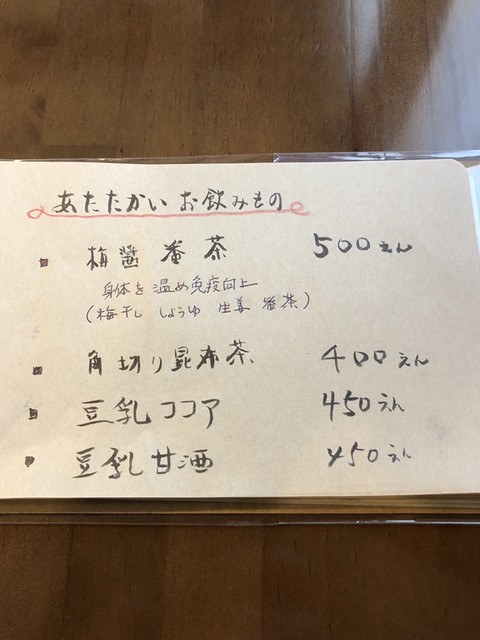 あたたかい お飲みもの
梅醤 番茶 500えん
身体を温め免疫向上
(梅干し しょうゆ 生姜 番茶)
角切り昆布茶 400えん
豆乳ココア 450えん
豆乳甘酒 450えん